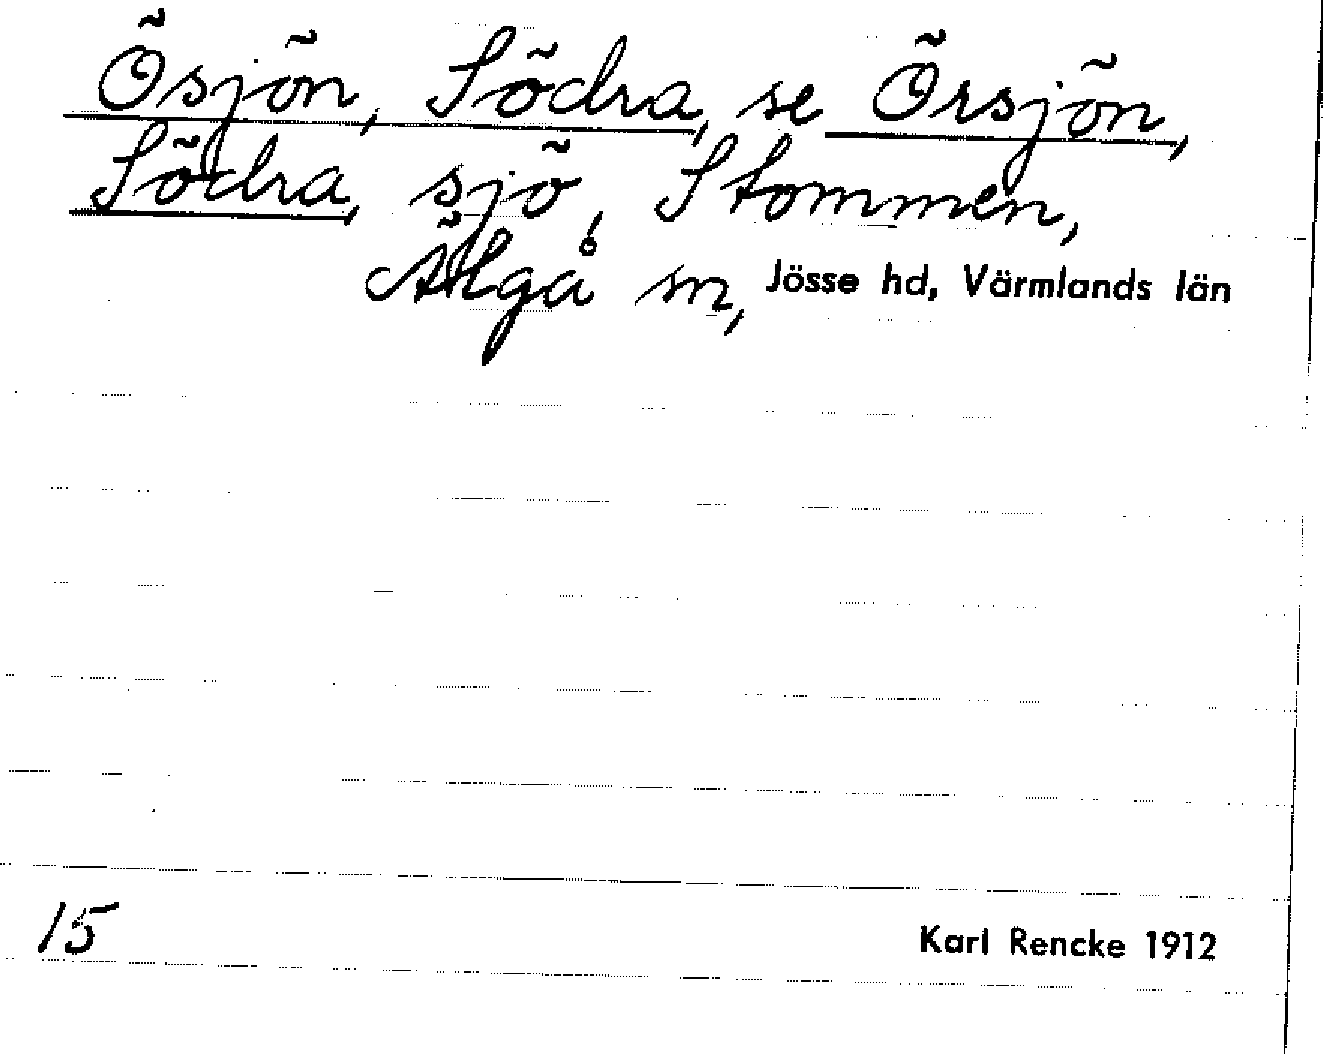 Ösjön, Södra, se Örsjön,
Södra, sjö, Stommen,
Älgå sn, Jösse hd, Värmlands län
15
Karl Rencke 1912